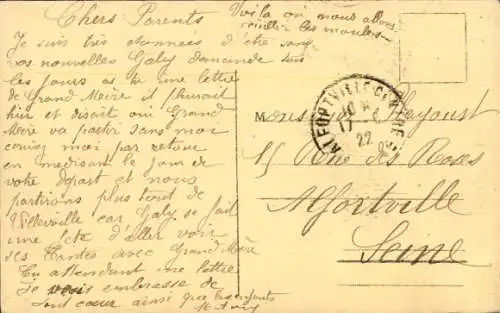 Chers Parents
Voilà où nous allons
cueillir les moules
Je suis très étonnée d'être sans
vos nouvelles Gaby demande tous
les jours as tu une lettre
de Grand Mère il pleurait
hier et disait oui Grand
Mère va partir sans moi
par retour
en me disant le jour de
votre départ et nous
partirons plus tout de
Villerville car Gaby se fait
une fête d'aller voir
ses Tantes avec Grand Mère
En attendant une lettre
Je vous embrasse de
tout cœur ainsi que les enfants
ALFORTVILLE CENTRE
10
17
22
Monsieur
15 Rue des Roses
Alfortville
Seine